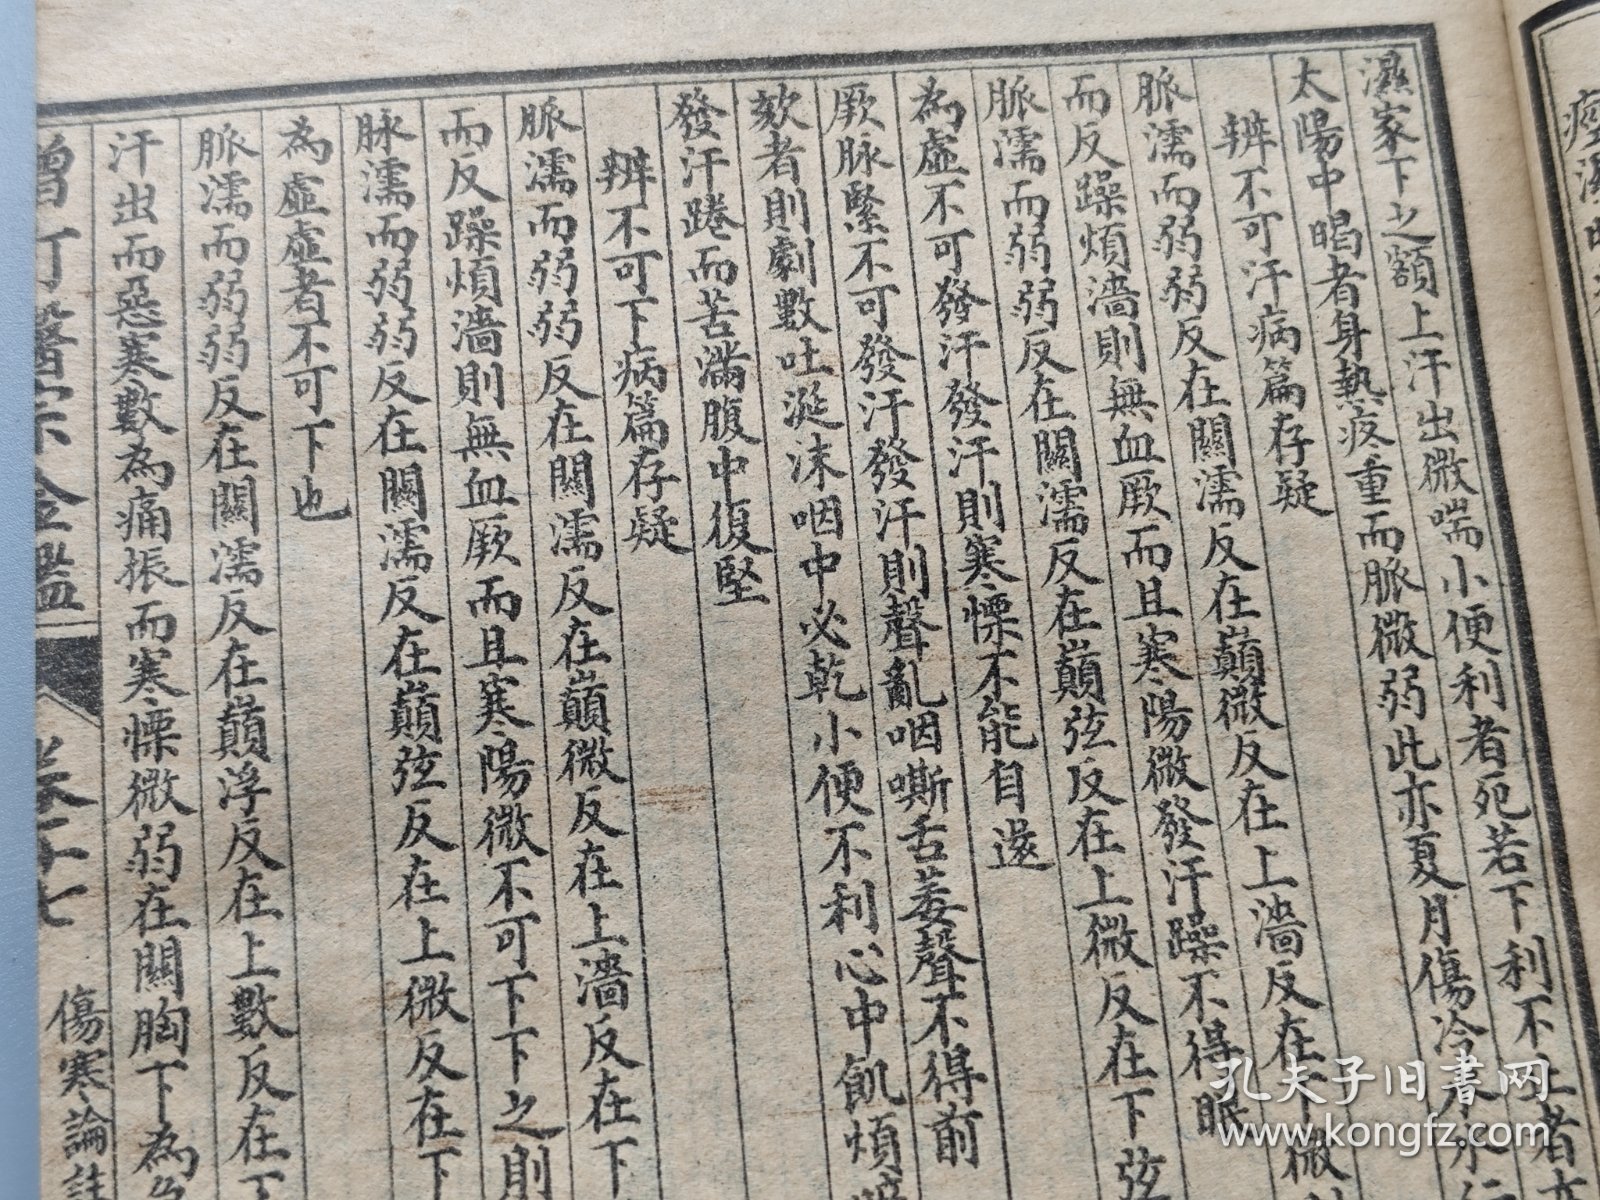 濕家下之額上汗出微喘小便利者死若下利不止者
太陽中暍者身熱疼重而脈微弱此亦夏月傷冷水水行
辨不可汗病篇存疑
脈濡而弱弱反在關濡反在巔微反在上濇反在下微
而反躁煩濇則無血厥而且寒陽微發汗躁不得眠
脈濡而弱弱反在關濡反在巔弦反在上微反在下弦
為虛不可發汗發汗則寒慄不能自還
厥脈緊不可發汗發汗則聲亂咽嘶舌萎聲不得前
欬者則劇數吐涎沫咽中必乾小便不利心中飢煩
發汗踡而苦滿腹中復堅
辨不可下病篇存疑
脈濡而弱弱反在關濡反在巔微反在上濇反在下
而反躁煩濇則無血厥而且寒陽微不可下下之則
脉濡而弱弱反在關濡反在巔弦反在上微反在下
為虛虛者不可下也
脈濡而弱弱反在關濡反在巔浮反在上數反在下
汗出而惡寒數為痛振而寒慄微弱在關胸下為
增訂醫宗金鑑
傷寒論註
孔夫子旧書网
www.kongfz.com